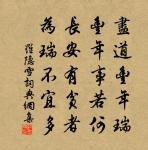 盡道豐年瑞
豐年事若何
長安有貧者
為瑞不宜多
羅隱雪詞典網集